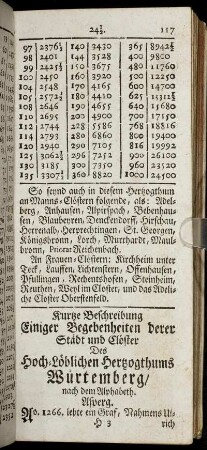 24½. 117
97 2376½ 140 3430 365 8942½
98 2401 144 3528 400 9800
99 2425½ 150 3675 480 11760
100 2450 160 3920 500 12250
104 2548 170 4165 600 14700
105 2572½ 180 4410 625 15312½
108 2646 190 4655 640 15680
110 2695 200 4900 700 17150
112 2744 228 5586 768 18816
114 2793 280 6860 800 19600
120 2940 290 7105 816 19992
125 3062½ 296 7252 900
130 3185 300 7350 960 23520
135 3307½ 360 8820 1000 24500
So seynd auch in diesem Hertzogthum
an Manns-Clöstern folgende, als: Adel-
berg, Anhausen, Alpirspach, Bebenhau-
sen, Blaubeyren, Denckendorff, Hirschau,
Herrenalb, Herprechtingen, St. Georgen,
Königsbronn, Lorch, Murrhardt, Maul-
bronn, Priorat Reichenbach.
An Frauen-Clöstern: Kirchheim unter
Teck, Lauffen, Lichtenstern, Offenhausen,
Pfullingen, Rechentshofen, Steinheim,
Reuthen, Weyl im Closter, und das Adeli-
che Closter Oberstenfeld.
Kurtze Beschreibung
Einiger Begebenheiten derer
Städt und Clöster
Des
Hoch-Löblichen Hertzogthums
Würtemberg/
nach dem Alphabeth.
Asperg.
Ao. 1266. lebte ein Graf, Nahmens Ul-
H 3 rich